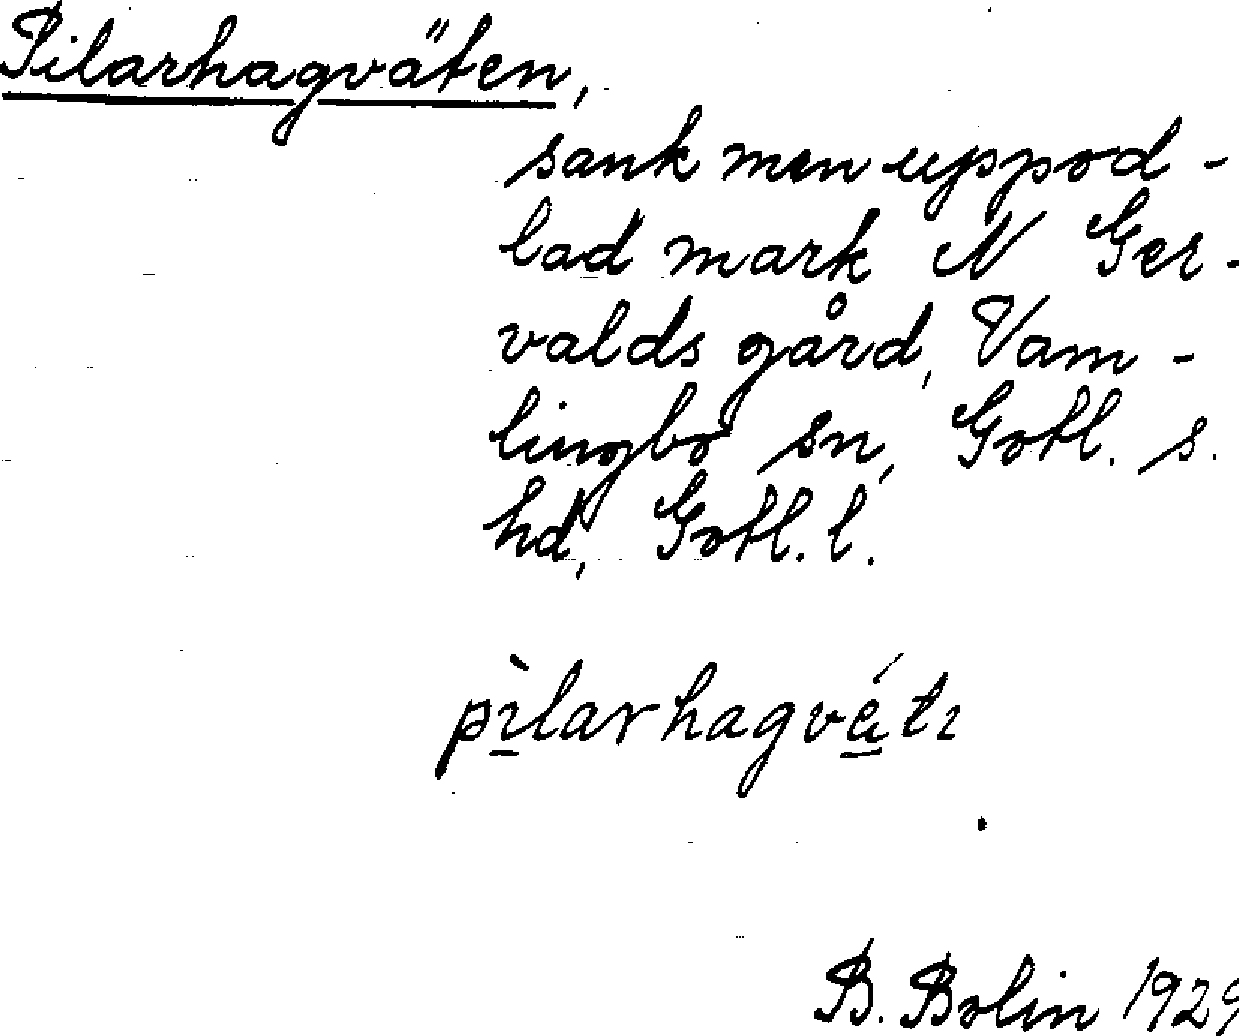 Pilarhagväten,
sank men uppod-
lad mark N Ger-
valds gård, Vam-
lingbo sn, Gotl. s.
hd, Gotl. l.
pìlarhagvátı
B. Bolin 1929